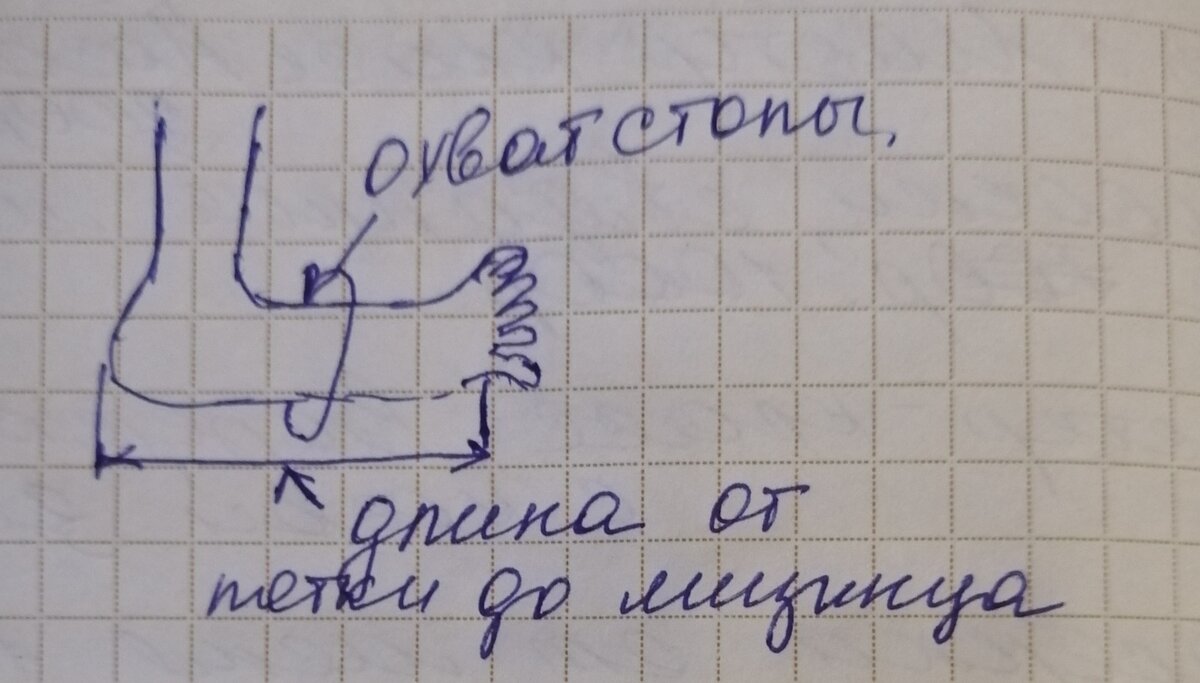 охват стопы.
длина от
петки до мизинца